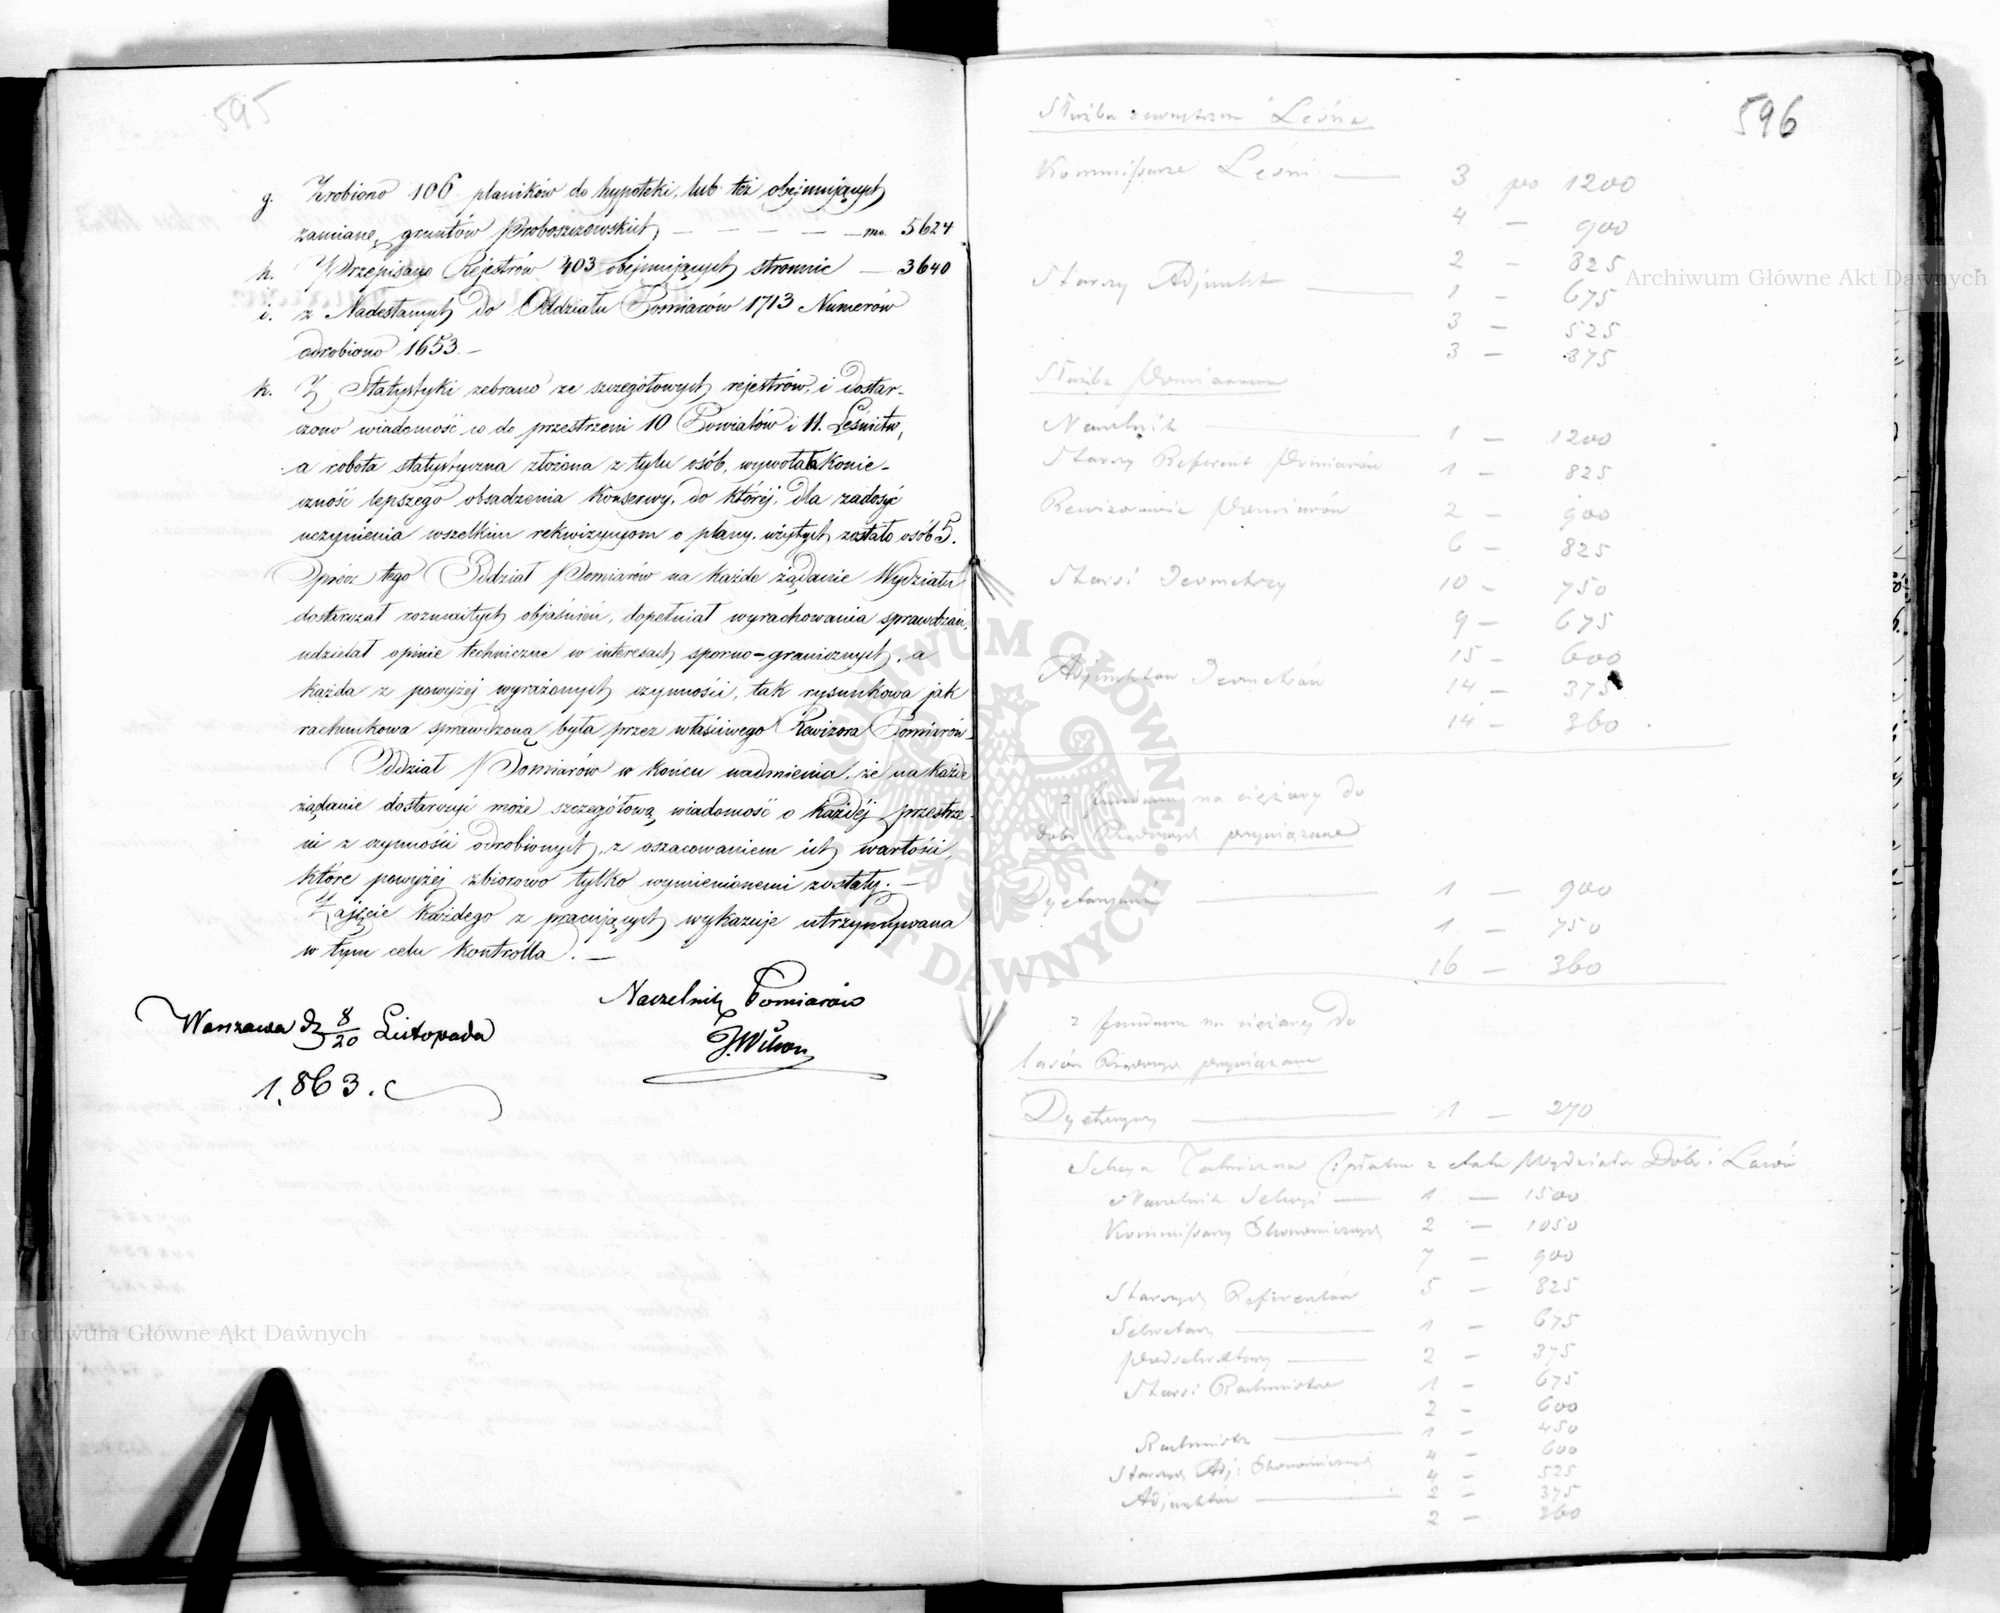 595
g. Zrobiono 106 planików do hypoteki, lub też obejmujących
zamianę gruntów Proboszczowskich — — — — — mo. 5624
h. Przepisano Rejestrów 403 obejmujących stronnic — 3640
i. z Nadesłanych do Oddziału Pomiarów 1713 Numerów
odrobiono 1653. —
k. Z Statystyki zebrano ze szczegółowych rejestrów, i dostar-
czono wiadomość co do przestrzeni 10 Powiatów i 11. Leśnictw,
a robota statystyczna złożona z tylu osób, wywołała konie-
czność lepszego obsadzenia Konserwy, do której, dla zadosyć
uczynienia wszelkim rekwizycyom o plany, użytych zostało osób 5.
Oprócz tego Oddział Pomiarów na każde żądanie Wydziału
dostarczał rozmaitych objaśnień, dopełniał wyrachowania sprawdzań,
udzielał opinie techniczne w interesach sporno-granicznych, a
każda z powyżej wyrażonych czynności, tak rysunkowa jak
rachunkowa sprawdzoną była przez właściwego Rewizora Pomiarów.
Oddział Pomiarów w końcu nadmienia, że na każde
żądanie dostarczyć może szczegółową wiadomość o każdéj przestrze-
ni z czynności odrobionych, z oszacowaniem ich wartości,
które powyżej zbiorowo tylko wymienionemi zostały. —
Zajęcie każdego z pracujących wykazuje utrzymywana
w tym celu kontrolla. —
Naczelnik Pomiarów
J. Wilson
Warszawa d. 8/20 Listopada
1,863.
596
Służba zewnętrzna Leśna
Kommissarze Leśni — 3 po 1200
4 — 900
2 — 825
Starszy Adjunkt — 1 — 675
3 — 525
3 — 375
Służba Pomiarowa
Naczelnik — 1 — 1200
Starszy Referent Pomiarów 1 — 825
Rewizorowie Pomiarów 2 — 900
6 — 825
Starsi Geometrzy 10 — 750
9 — 675
15 — 600
Adjunktów Geometrów 14 — 375
14 — 360
z funduszu na ciężary do
dóbr Rządowych przywiązane
— 1 — 900
1 — 750
16 — 360
z funduszu na ciężary do
lasów Rządowych przywiązane
— 1 — 270
Sekcya Techniczna płatna z etatu Wydziału Dóbr i Lasów
Naczelnik Sekcyi — 1 — 1500
Kommissarzy Ekonomicznych 2 — 1050
7 — 900
Starszych Referentów 5 — 825
Sekretarz — 1 — 675
Podsekretarzy — 2 — 375
Starsi Rachmistrze 1 — 675
2 — 600
Rachmistrz — 1 — 450
Starszych Adj: Ekonomicznych 4 — 600
4 — 525
Adjunktów — 2 — 375
2 — 360
Archiwum Główne Akt Dawnych
Archiwum Główne Akt Dawnych
ARCHIWUM GŁÓWNE AKT DAWNYCH